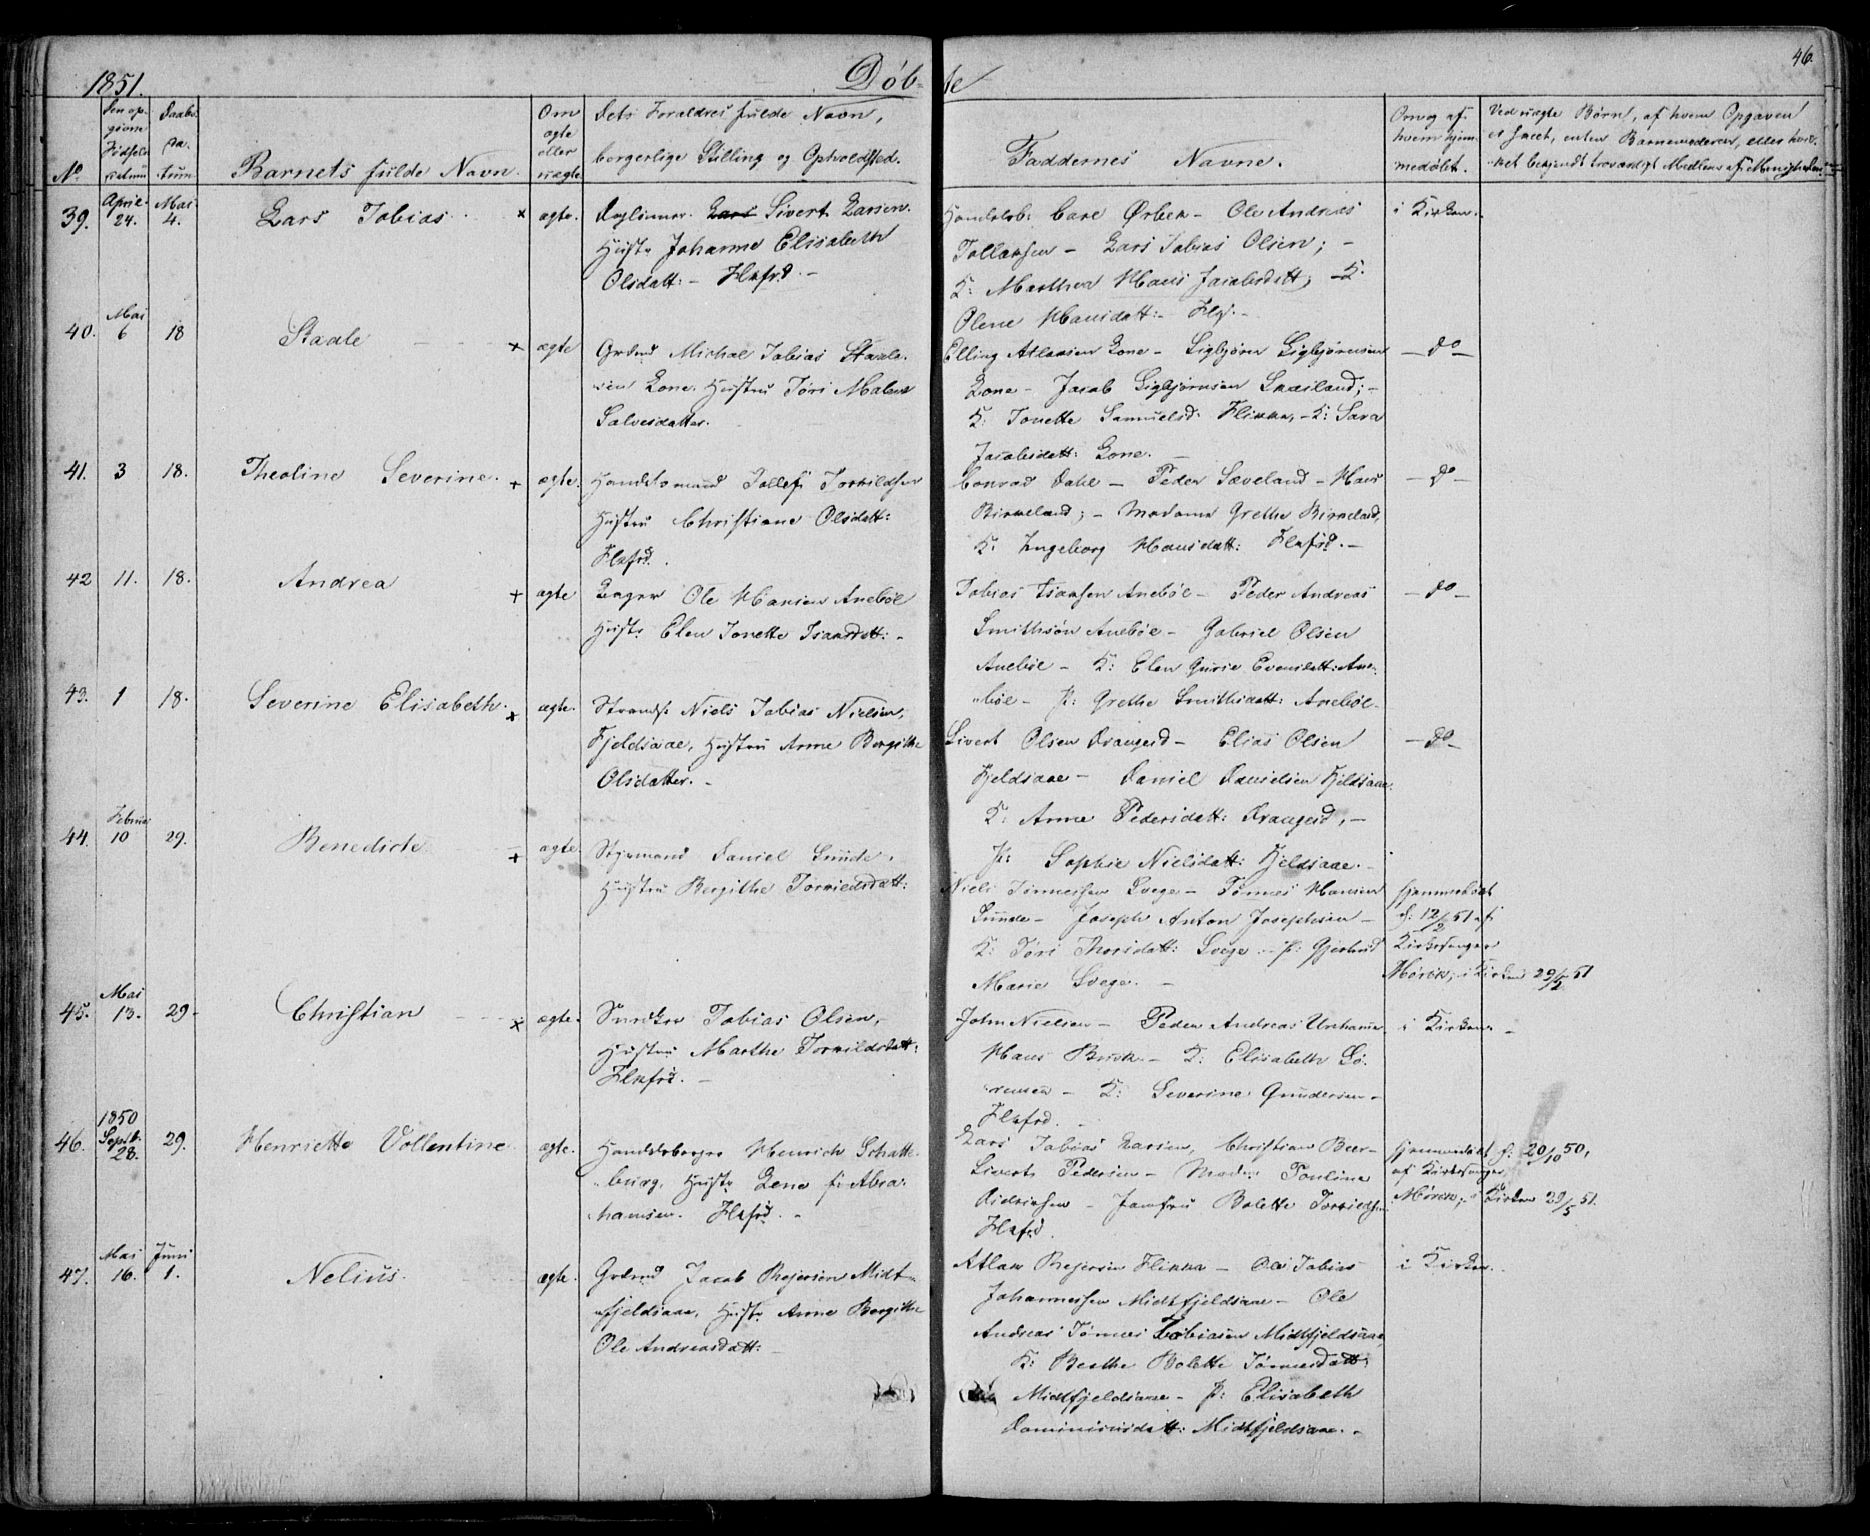 1851.
Döb- te
46.
No.
Den op-
givne
Fødsels
datum
Daabs
da-
tum.
Barnets fulde Navn.
Om
ægte
eller
uægte
Dets Forældres fulde Navn,
borgerlige Stilling og Opholdsted.
Faddernes Navne.
Om og af
hvem hjem-
medøbt.
Ved uægte Børn, af hvem Opgaven
er skeet, enten Barnemoderen, eller hvil-
ket bekjendt troværdigt Medlem af Menigheden.
39. April 24. Mai 4. Lars Tobias. × ægte. Daglönner. Lars Sivert Larsen.
Hustr. Johanne Elisabeth
Olsdatt: – Flkfrd. –
Handelsb: Carl Ørbek – Ole Andreas
Tollaksen – Lars Tobias Olsen; –
K: Marthe Hans Jacobsdatt; – K:
Olene Hansdatt: – Flkf. –
i Kirken.
40. Mai 6 18 Staale × ægte Grdmd Michal Tobias Staale-
sen Lone. Hustru Tøri Malene
Salvesdatter.
Elling Atlaksen Lone – Sigbjörn Sigbjörnsen
Lone – Jacob Sigbjørnsen Skailand; –
K: Tonette Samuelsd: Flikka, – K: Sara
Jacobsdatt: Lone. –
– do –
41. 3 18. Theoline Severine. + ægte. Handelsmand Tollef Torkildsen
Hustru Christiane Olsdatt:
Flkfrd.
Conrad Dahl – Peder Sæveland – Hans
Birkeland; – Madame Grethe Birkeland,
K: Ingeborg Hansdatt: Flkfrd. –
– do –
42 11. 18. Andrea + ægte Ole Hansen Anebøe
Hustr. Elen Tonette Isaksdatt: –
Tobias Isaksen Anebøe – Peder Andreas
Smithsön Anebøe – Gabriel Olsen
Anebøe – K: Elen Gurie Evensdatt: Ane-
bøe – P: Grethe Smithsdatt: Anebøe –
– do –
43. 1 18. Severine Elisabeth. × ægte. Strands. Niels Tobias Nielsen,
Fjeldsaae, Hustru Anne Bergithe
Olsdatter. –
Sivert Olsen Drangeid – Elias Olsen
Fjeldsaae – Daniel Danielsen Fjeldsaae
K: Anne Pedersdatt: Drangeid, –
P: Sophie Nielsdatt: Fjeldsaae. –
– do –
44. Februar 10 29. Benedicte + ægte. Styrmand Daniel Sunde,
Hustru Bergithe Torkildsdatt:
Niels Tønnessen Svege – Tønnes Hansen
Sunde – Joseph Anton Josephsen –
K: Tøri Thorsdatt: Svege – P: Gjertrud
Marie Svege. –
hjemmedøbt
d: 12/2 51 af
Kirkesanger
Mørch; i Kirken 29/5 51
45. Mai 13. 29. Christian × ægte. Snedker Tobias Olsen,
Hustru Marthe Torkildsdatt:
Flkfrd. –
John Nielsen – Peder Andreas Urehamn
Hans Buch – K: Elisabeth Sö-
rensen – K: Severine Gundersen –
Flkfrd. –
i Kirken. –
46. 1850 Septb. 28. 29. Henriette Vollentine. ægte. Handelsborger Henrich Schatte-
burg, Hustr. Lene f: Abra-
hamsen. Flkfrd. –
Lars Tobias Larsen, Christian Beer –
Sivert Pedersen – Mad: Pauline
Didriksen – Jomfru Bolette Torkildsen
Flkfrd.
hjemmedøbt d: 20/10 50,
af Kirkesanger
Mørch; i Kirken 29/5 51.
47. Mai 16. Juni 1. Nelius. ægte. Grdmd Jacob Reiersen Midt-
fjeldsaae, Hustr. Anne Bergithe
Ole Andreasdatt: –
Atlak Reiersen Flikka – Ole Tobias
Johannessen Midtfjeldsaae – Ole
Andreas Tønnes Tobiasen Midtfjeldsaae
K: Berthe Bolette Tønnesdatt:
Midtfjeldsaae – P: Elisabeth
Dominicusdatt: Midtfjeldsaae. –
i Kirken. –